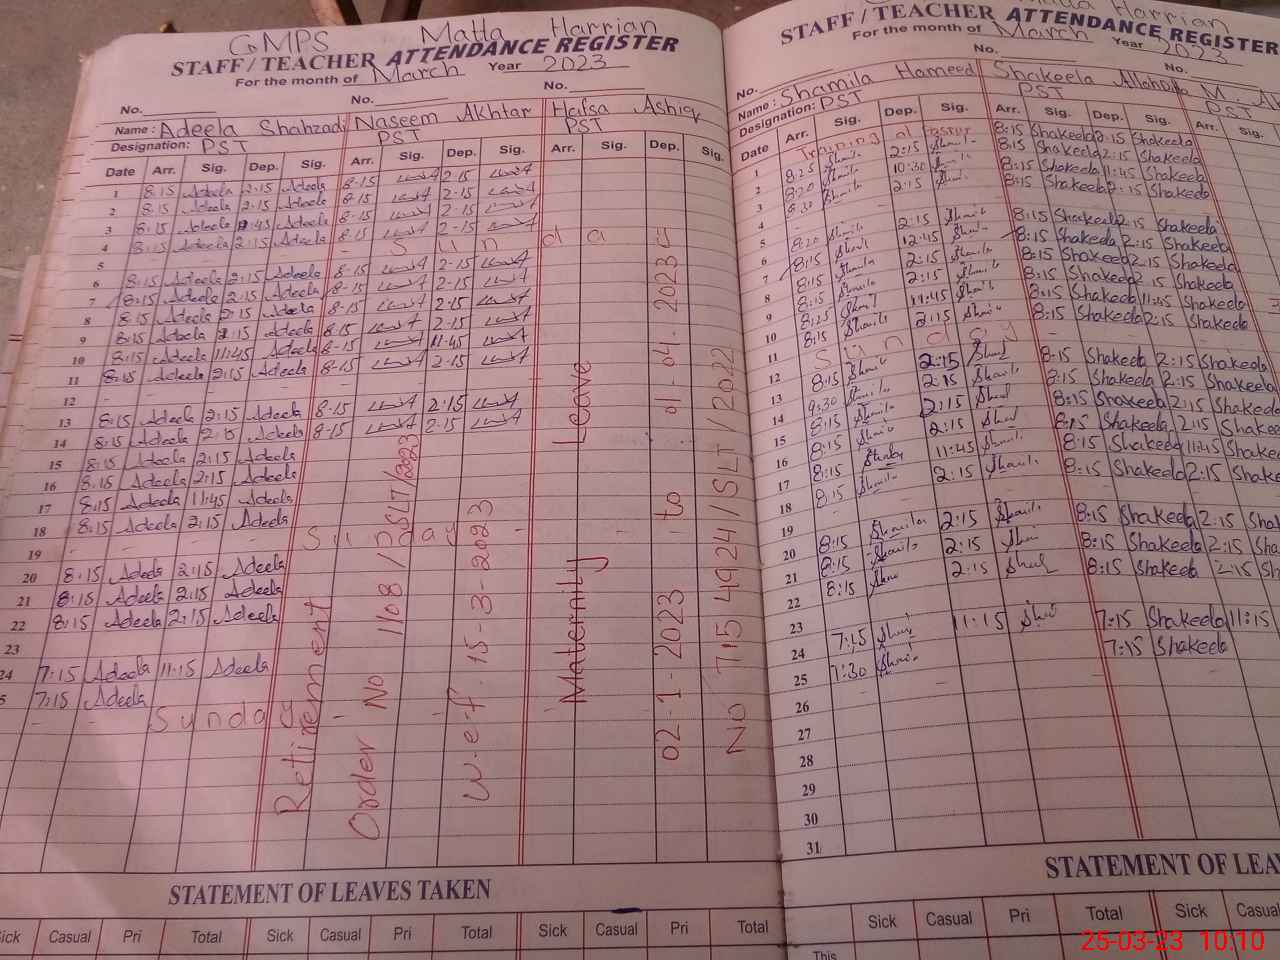 GMPS Matta Harrian
STAFF / TEACHER ATTENDANCE REGISTER
For the month of March Year 2023
No. No. No.
Name : Adeela Shahzadi Naseem Akhtar Hafsa Ashiq
Designation: PST PST PST
Date Arr. Sig. Dep. Sig. Arr. Sig. Dep. Sig. Arr. Sig. Dep. Sig.
1 8:15 Adeela 2:15 Adeela 8-15 2-15
2 8:15 Adeela 2:15 Adeela 8-15 2-15
3 8:15 Adeela 11:45 Adeela 8-15 2-15
4 8:15 Adeela 2:15 Adeela 8-15 2-15
5 Sunday
6 8:15 Adeela 2:15 Adeela 8-15 2-15
7 8:15 Adeela 2:15 Adeela 8-15 2-15
8 8:15 Adeela 2:15 Adeela 8-15 2-15
9 8:15 Adeela 2:15 Adeela 8-15 2-15
10 8:15 Adeela 11:45 Adeela 8-15 11-45
11 8:15 Adeela 2:15 Adeela 8-15 2-15
12 - -
13 8:15 Adeela 2:15 Adeela 8-15 2:15
14 8:15 Adeela 2:15 Adeela 8-15 2-15
15 8:15 Adeela 2:15 Adeela
16 8:15 Adeela 2:15 Adeela
17 8:15 Adeela 11:45 Adeela
18 8:15 Adeela 2:15 Adeela
19 - - - - Sunday - - -
20 8:15 Adeela 2:15 Adeela
21 8:15 Adeela 2:15 Adeela
22 8:15 Adeela 2:15 Adeela
23
24 7:15 Adeela 11:15 Adeela
5 7:15 Adeela
- - Sunday - -
Retirement
Order No 1108 / DSLT/2023
w.e.f. 15-3-2023
Maternity Leave
02-1-2023 to 01-04-2023
No 715 4924/SLT/2022
STATEMENT OF LEAVES TAKEN
Sick Casual Pri Total Sick Casual Pri Total Sick Casual Pri Total
Matta Harrian
STAFF / TEACHER ATTENDANCE REGISTER
For the month of March Year 2023
No. No. No.
Name : Shamila Hameed Shakeela Allahditta
Designation: PST PST PST
Date Arr. Sig. Dep. Sig. Arr. Sig. Dep. Sig. Arr. Sig.
1 Training at 8:15 Shakeela 2:15 Shakeela
2 8:25 2:15 8:15 Shakeela 2:15 Shakeela
3 8:20 10:30 8:15 Shakeela 11:45 Shakeela
4 8:30 2:15 8:15 Shakeela 2:15 Shakeela
5 -
6 8:20 2:15 8:15 Shakeela 2:15 Shakeela
7 8:15 12:45 8:15 Shakeela 2:15 Shakeela
8 8:15 2:15 8:15 Shakeela 2:15 Shakeela
9 8:15 2:15 8:15 Shakeela 2:15 Shakeela
10 8:25 11:45 8:15 Shakeela 11:45 Shakeela
11 8:15 2:15 8:15 Shakeela 2:15 Shakeela
12 Sunday
13 8:15 2:15 8:15 Shakeela 2:15 Shakeela
14 9:30 2:15 8:15 Shakeela 2:15 Shakeela
15 8:15 2:15 8:15 Shakeela 2:15 Shakeela
16 8:15 2:15 8:15 Shakeela 2:15 Shakee
17 8:15 11:45 8:15 Shakeela 11:45 Shakee
18 8:15 2:15 8:15 Shakeela 2:15 Shakee
19 - - -
20 8:15 2:15 8:15 Shakeela 2:15 Shak
21 8:15 2:15 8:15 Shakeela 2:15 Sha
22 8:15 2:15 8:15 Shakeela 2:15 Sh
23
24 7:15 11:15 7:15 Shakeela 11:15
25 7:30 7:15 Shakeela
26 - - -
27
28
29
30
31
STATEMENT OF LEA
Sick Casual Pri Total Sick Casua
This
25-03-23 10:10